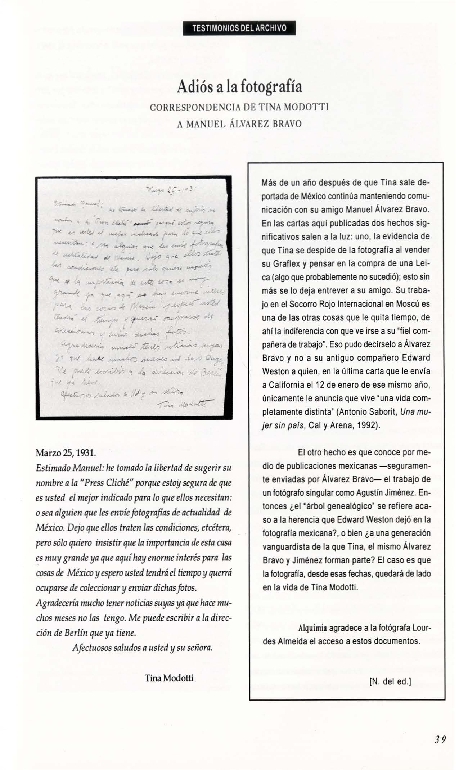 TESTIMONIOS DEL ARCHIVO
Adiós a la fotografía
CORRESPONDENCIA DE TINA MODOTTI
A MANUEL ÁLVAREZ BRAVO
Marzo 25, 1931.
Estimado Manuel: he tomado la libertad de sugerir su
nombre a la "Press Cliché" porque estoy segura de que
es usted el mejor indicado para lo que ellos necesitan:
o sea alguien que les envíe fotografías de actualidad de
México. Dejo que ellos traten las condiciones, etcétera,
pero sólo quiero insistir que la importancia de esta casa
es muy grande ya que aquí hay enorme interés para las
cosas de México y espero usted tendrá el tiempo y querrá
ocuparse de coleccionar y enviar dichas fotos.
Agradecería mucho tener noticias suyas ya que hace mu-
chos meses no las tengo. Me puede escribir a la direc-
ción de Berlín que ya tiene.
Afectuosos saludos a usted y su señora.
Tina Modotti
Más de un año después de que Tina sale de-
portada de México continúa manteniendo comu-
nicación con su amigo Manuel Álvarez Bravo.
En las cartas aquí publicadas dos hechos sig-
nificativos salen a la luz: uno, la evidencia de
que Tina se despide de la fotografía al vender
su Graflex y pensar en la compra de una Lei-
ca (algo que probablemente no sucedió); esto sin
más se lo deja entrever a su amigo. Su traba-
jo en el Socorro Rojo Internacional en Moscú es
una de las otras cosas que le quita tiempo, de
ahí la indiferencia con que ve irse a su "fiel com-
pañera de trabajo". Eso pudo decírselo a Álvarez
Bravo y no a su antiguo compañero Edward
Weston a quien, en la última carta que le envía
a California el 12 de enero de ese mismo año,
únicamente le anuncia que vive "una vida com-
pletamente distinta" (Antonio Saborit, Una mu-
jer sin país, Cal y Arena, 1992).
El otro hecho es que conoce por me-
dio de publicaciones mexicanas —seguramen-
te enviadas por Álvarez Bravo— el trabajo de
un fotógrafo singular como Agustín Jiménez. En-
tonces ¿el "árbol genealógico" se refiere aca-
so a la herencia que Edward Weston dejó en la
fotografía mexicana?, o bien ¿a una generación
vanguardista de la que Tina, el mismo Álvarez
Bravo y Jiménez forman parte? El caso es que
la fotografía, desde esas fechas, quedará de lado
en la vida de Tina Modotti.
Alquimia agradece a la fotógrafa Lour-
des Almeida el acceso a estos documentos.
[N. del ed.]
39